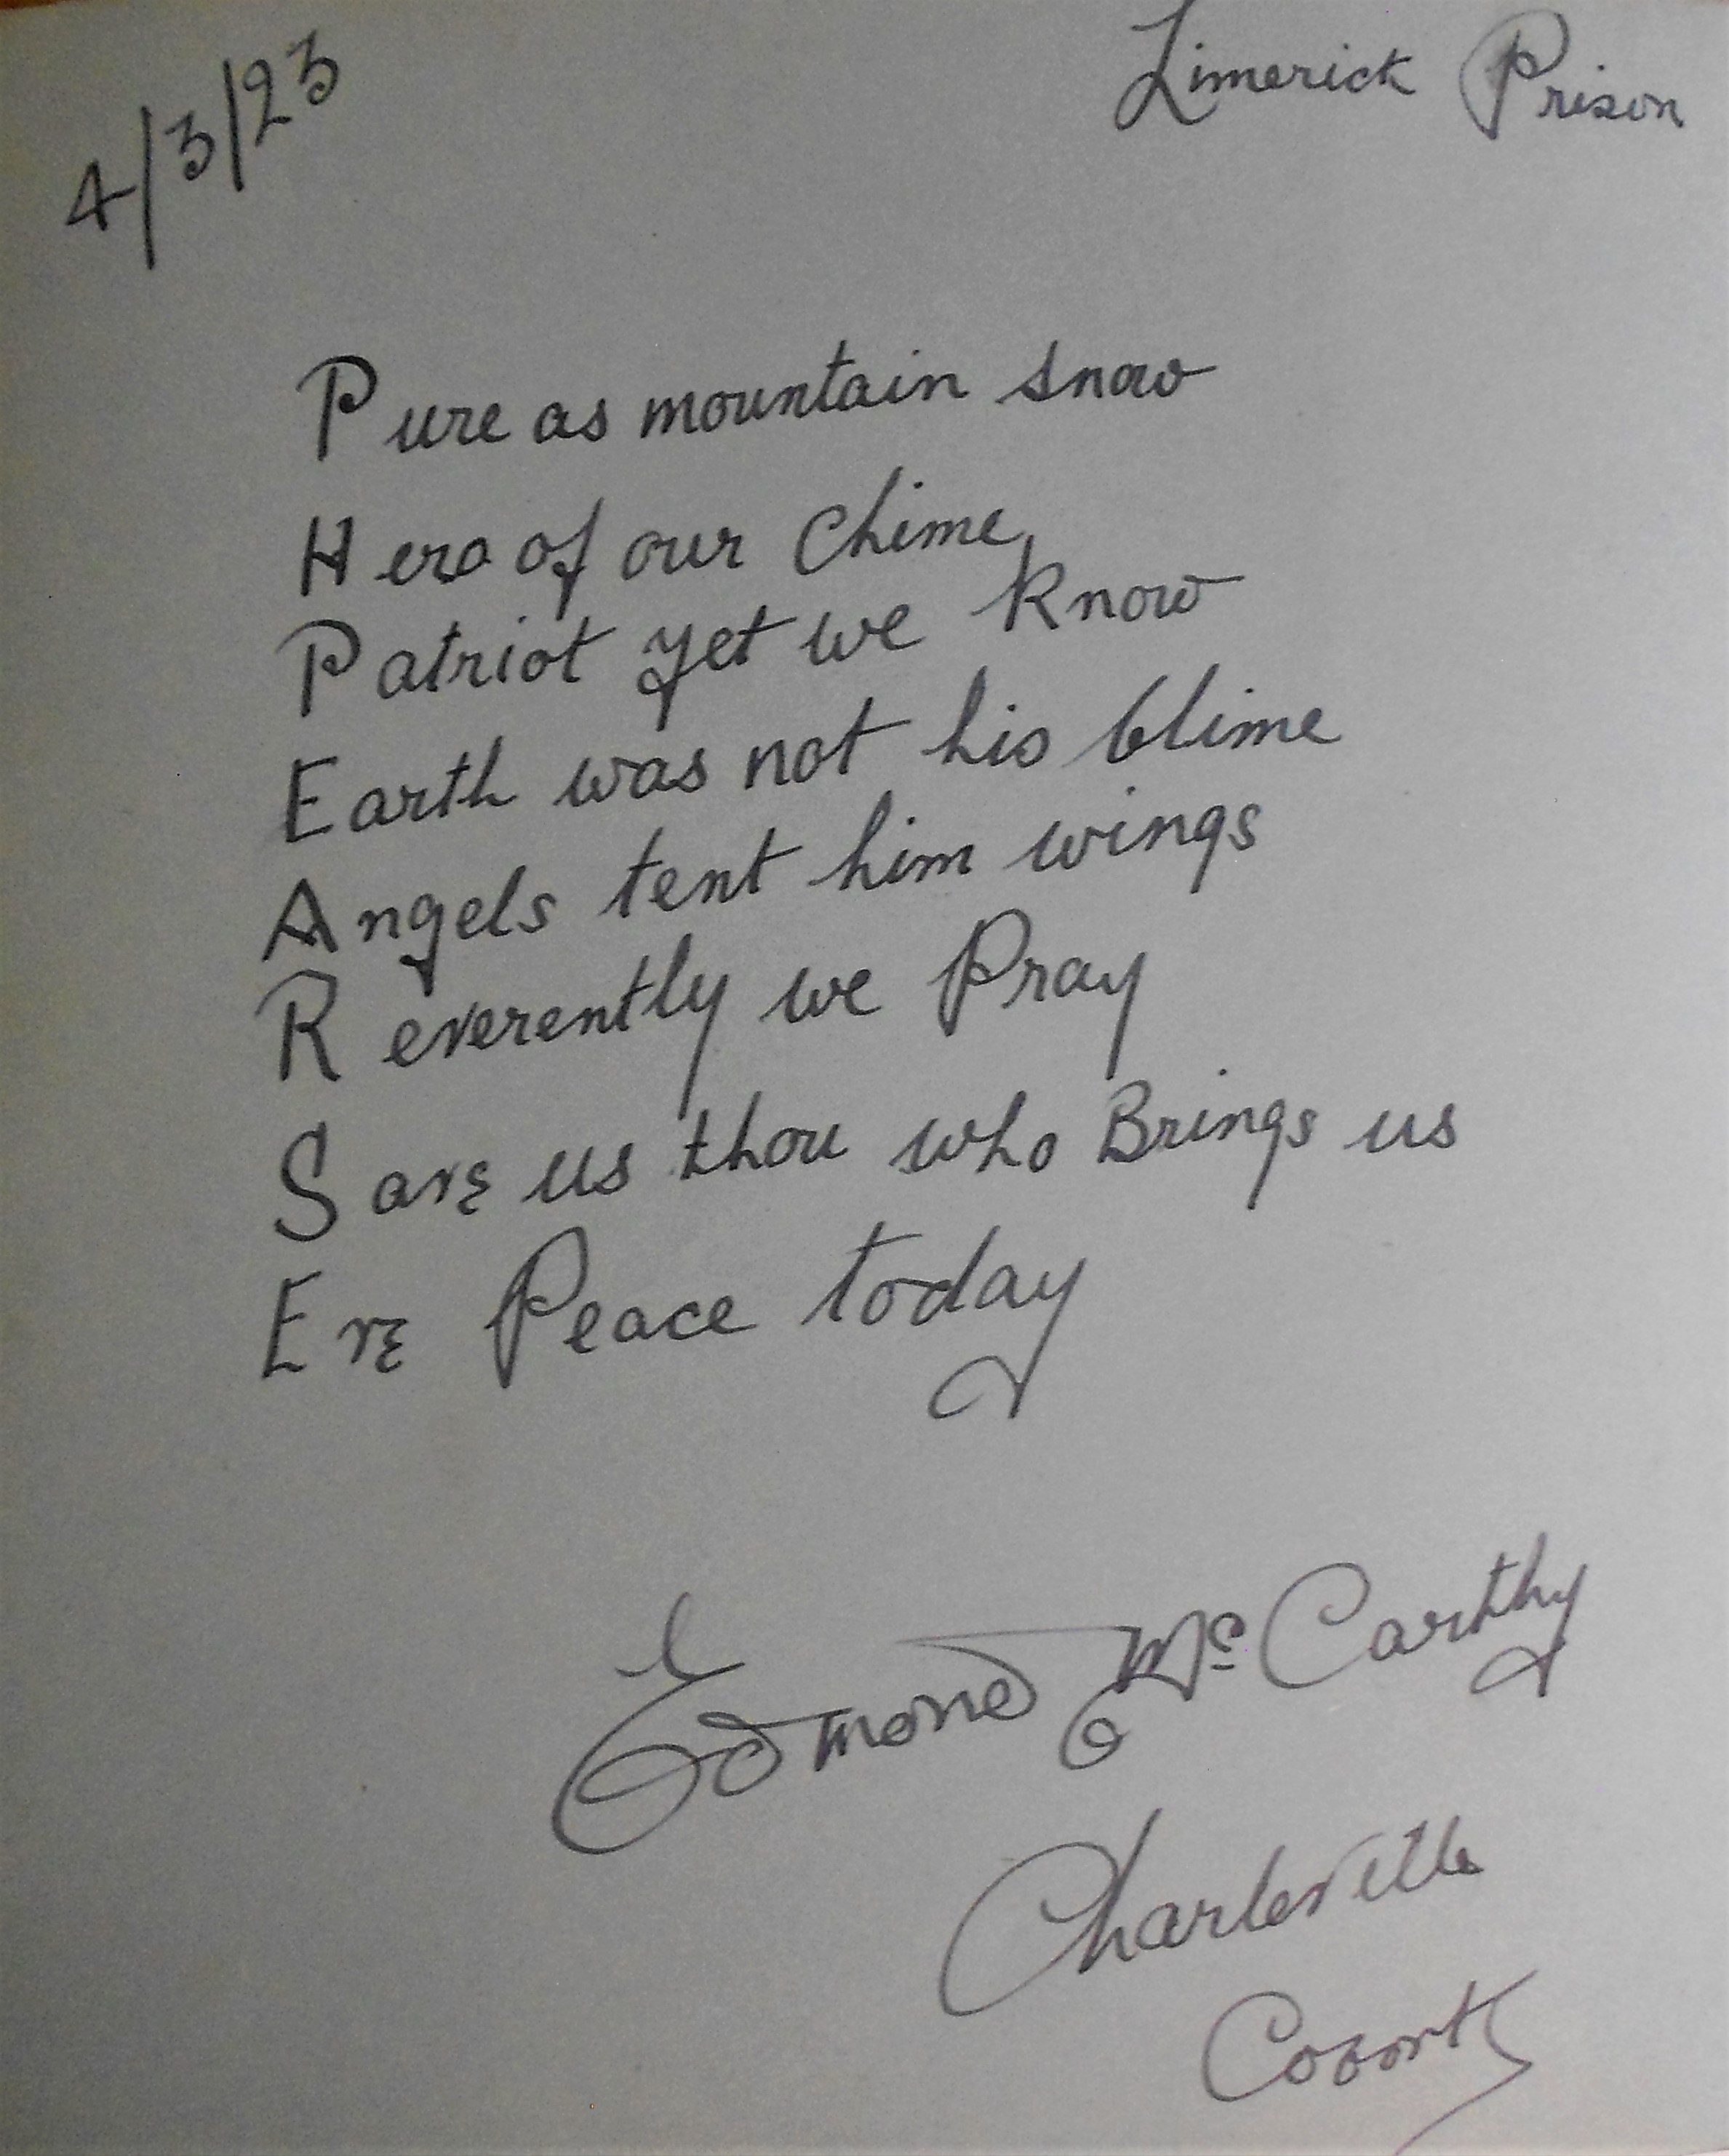 4/3/23
Limerick Prison
Pure as mountain snow
Hero of our Chime
Patriot yet we know
Earth was not his Clime
Angels tent him wings
Reverently we Pray
Save us thou who Brings us
Ere Peace today
Edmond Mc Carthy
Charleville